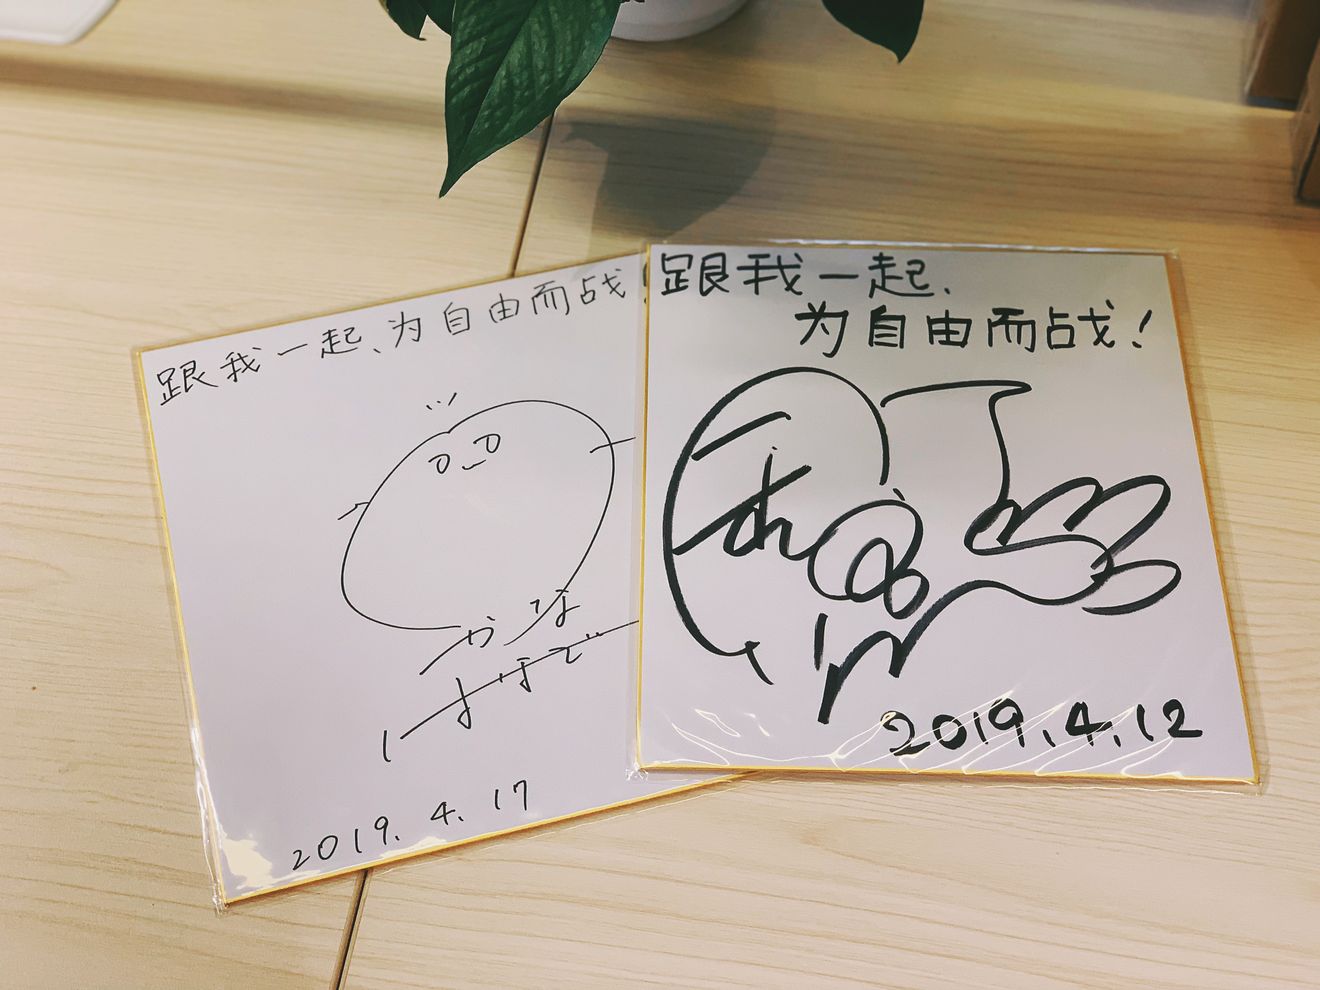 跟我一起、为自由而战!
かな
すぼで
2019.4.17
跟我一起、
为自由而战!
2019.4.12